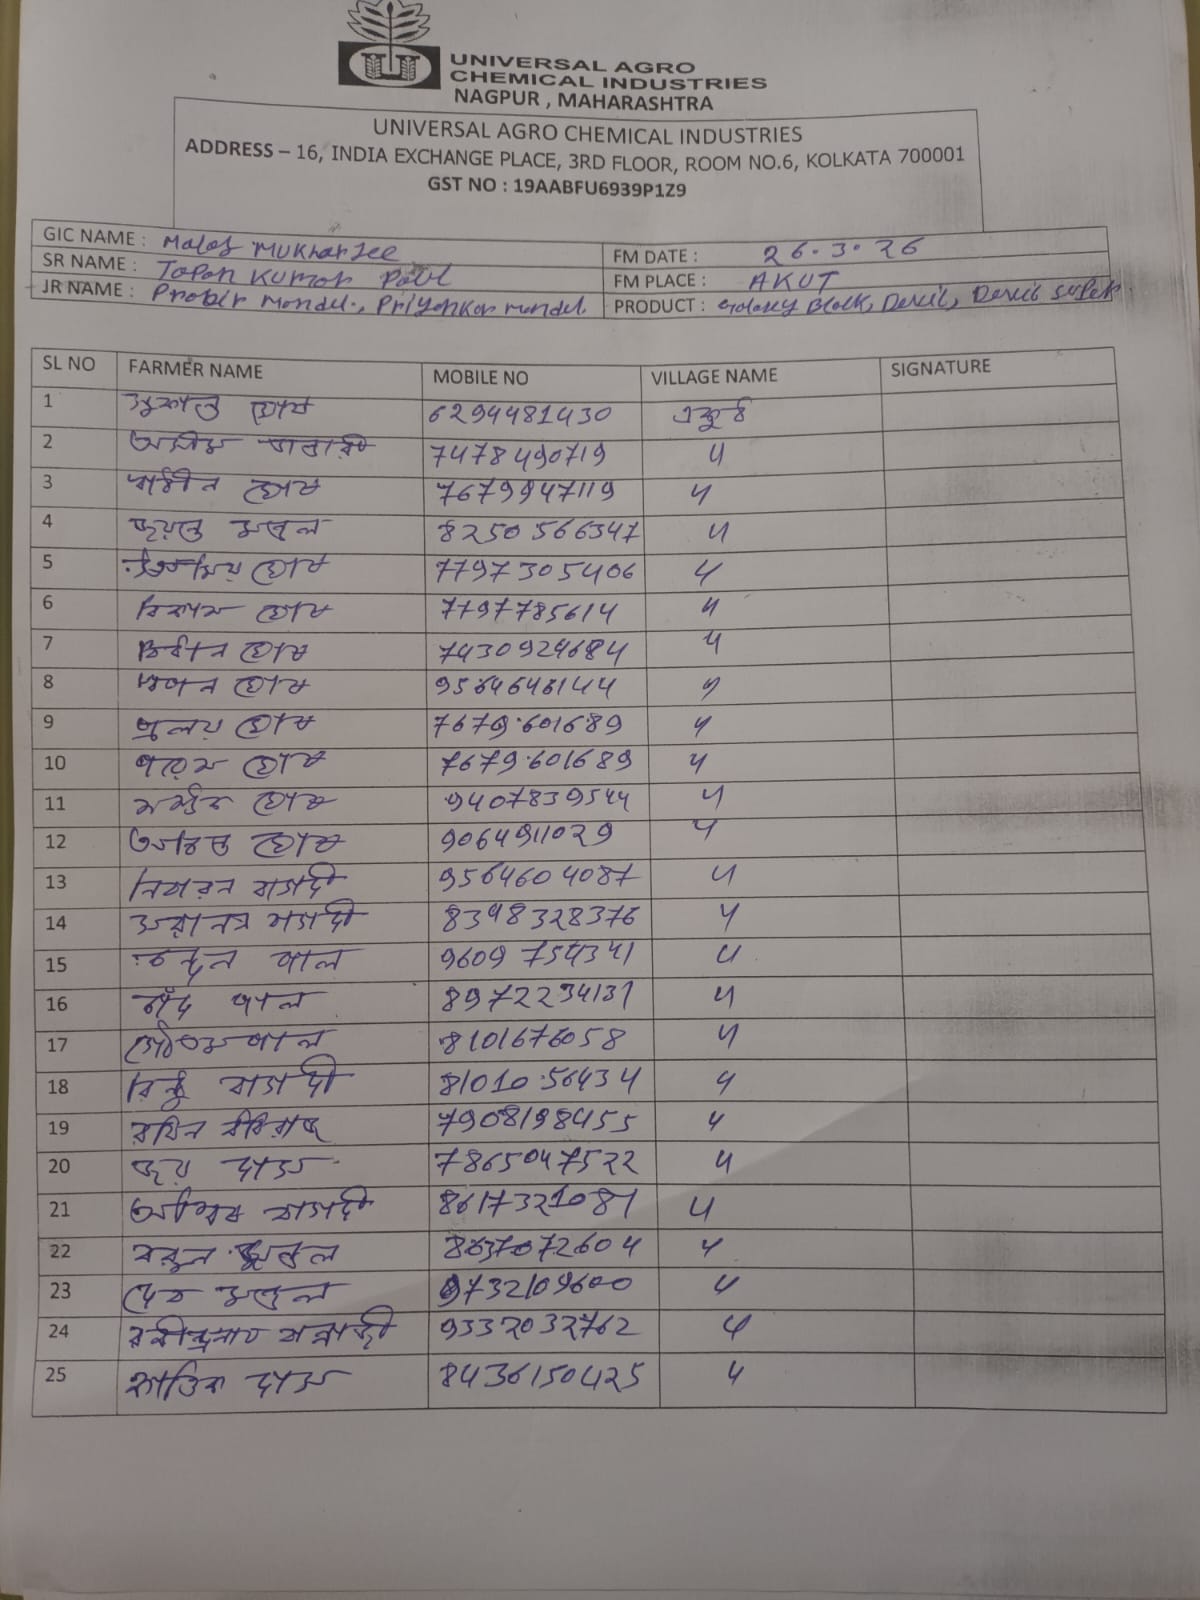 UNIVERSAL AGRO
CHEMICAL INDUSTRIES
NAGPUR , MAHARASHTRA
UNIVERSAL AGRO CHEMICAL INDUSTRIES
ADDRESS – 16, INDIA EXCHANGE PLACE, 3RD FLOOR, ROOM NO.6, KOLKATA 700001
GST NO : 19AABFU6939P1Z9
GIC NAME : Maloy Mukharjee FM DATE : 26.3.26
SR NAME : Tapan Kumar Paul FM PLACE : AKUT
JR NAME : Prabir Mondal., Priyankar mondal. PRODUCT : Galaxy Black, Devil, Devil super.
SL NO FARMER NAME MOBILE NO VILLAGE NAME SIGNATURE
1 সুকান্ত ঘোষ 6294481430
2 অসীম 7478490719 〃
3 ঘোষ 7679947119 〃
4 জয়ন্ত মণ্ডল 8250566347 〃
5 ঘোষ 7797305406 〃
6 বিকাশ ঘোষ 7797785614 〃
7 ঘোষ 7430924684 〃
8 স্বপন ঘোষ 〃
9 প্রলয় ঘোষ 7679.601689 〃
10 পরেশ ঘোষ 7679.601689 〃
11 ঘোষ 9407839544 〃
12 ঘোষ 9064911029 〃
13 নিবারন বাগদী 9564604087 〃
14 বাগদী 8398328376 〃
15 চন্দন পাল 9609754341 〃
16 চাঁদু পাল 8972234131 〃
17 গৌতম পাল 8101676058 〃
18 রিন্টু বাগদী 81010.56434 〃
19 রবিন কবিরাজ 7908198455 〃
20 জয় দাস 7865047522 〃
21 বাগদী 8617321081 〃
22 বরুন মণ্ডল 8637072604 〃
23 দেব মণ্ডল 9732109600 〃
24 রবীন্দ্রনাথ 9332032762 〃
25 কার্তিক দাস 8436150425 〃